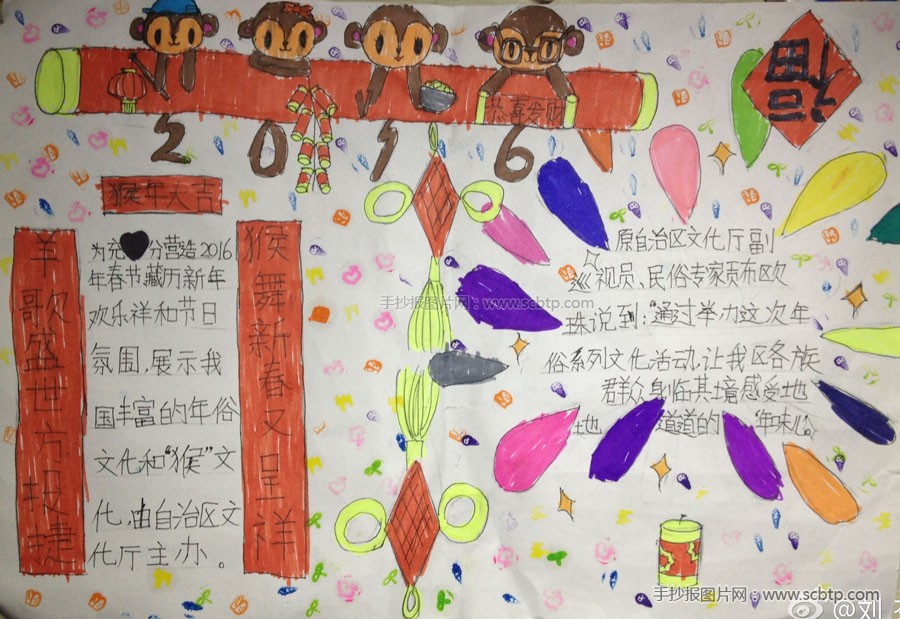 恭喜发财
福
2016
猴年大吉
羊歌盛世方报捷
猴舞新春又呈祥
为充分营造2016
年春节藏历新年
欢乐祥和节日
氛围,展示我
国丰富的年俗
文化和“猴”文
化,由自治区文
化厅主办。
原自治区文化厅副
巡视员、民俗专家贡布欧
珠说到:“通过举办这次年
俗系列文化活动,让我区各族
群众身临其境感受地
地道道的年味儿。
手抄报图片网:www.scbtp.com
手抄报图片网:www.scbtp.com
@刘